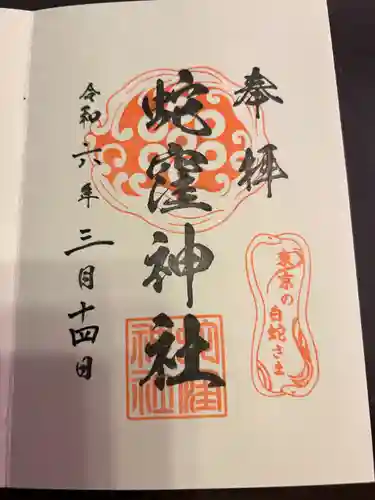 奉拝
東京の
白蛇さま
蛇窪神社
令和六年三月十四日